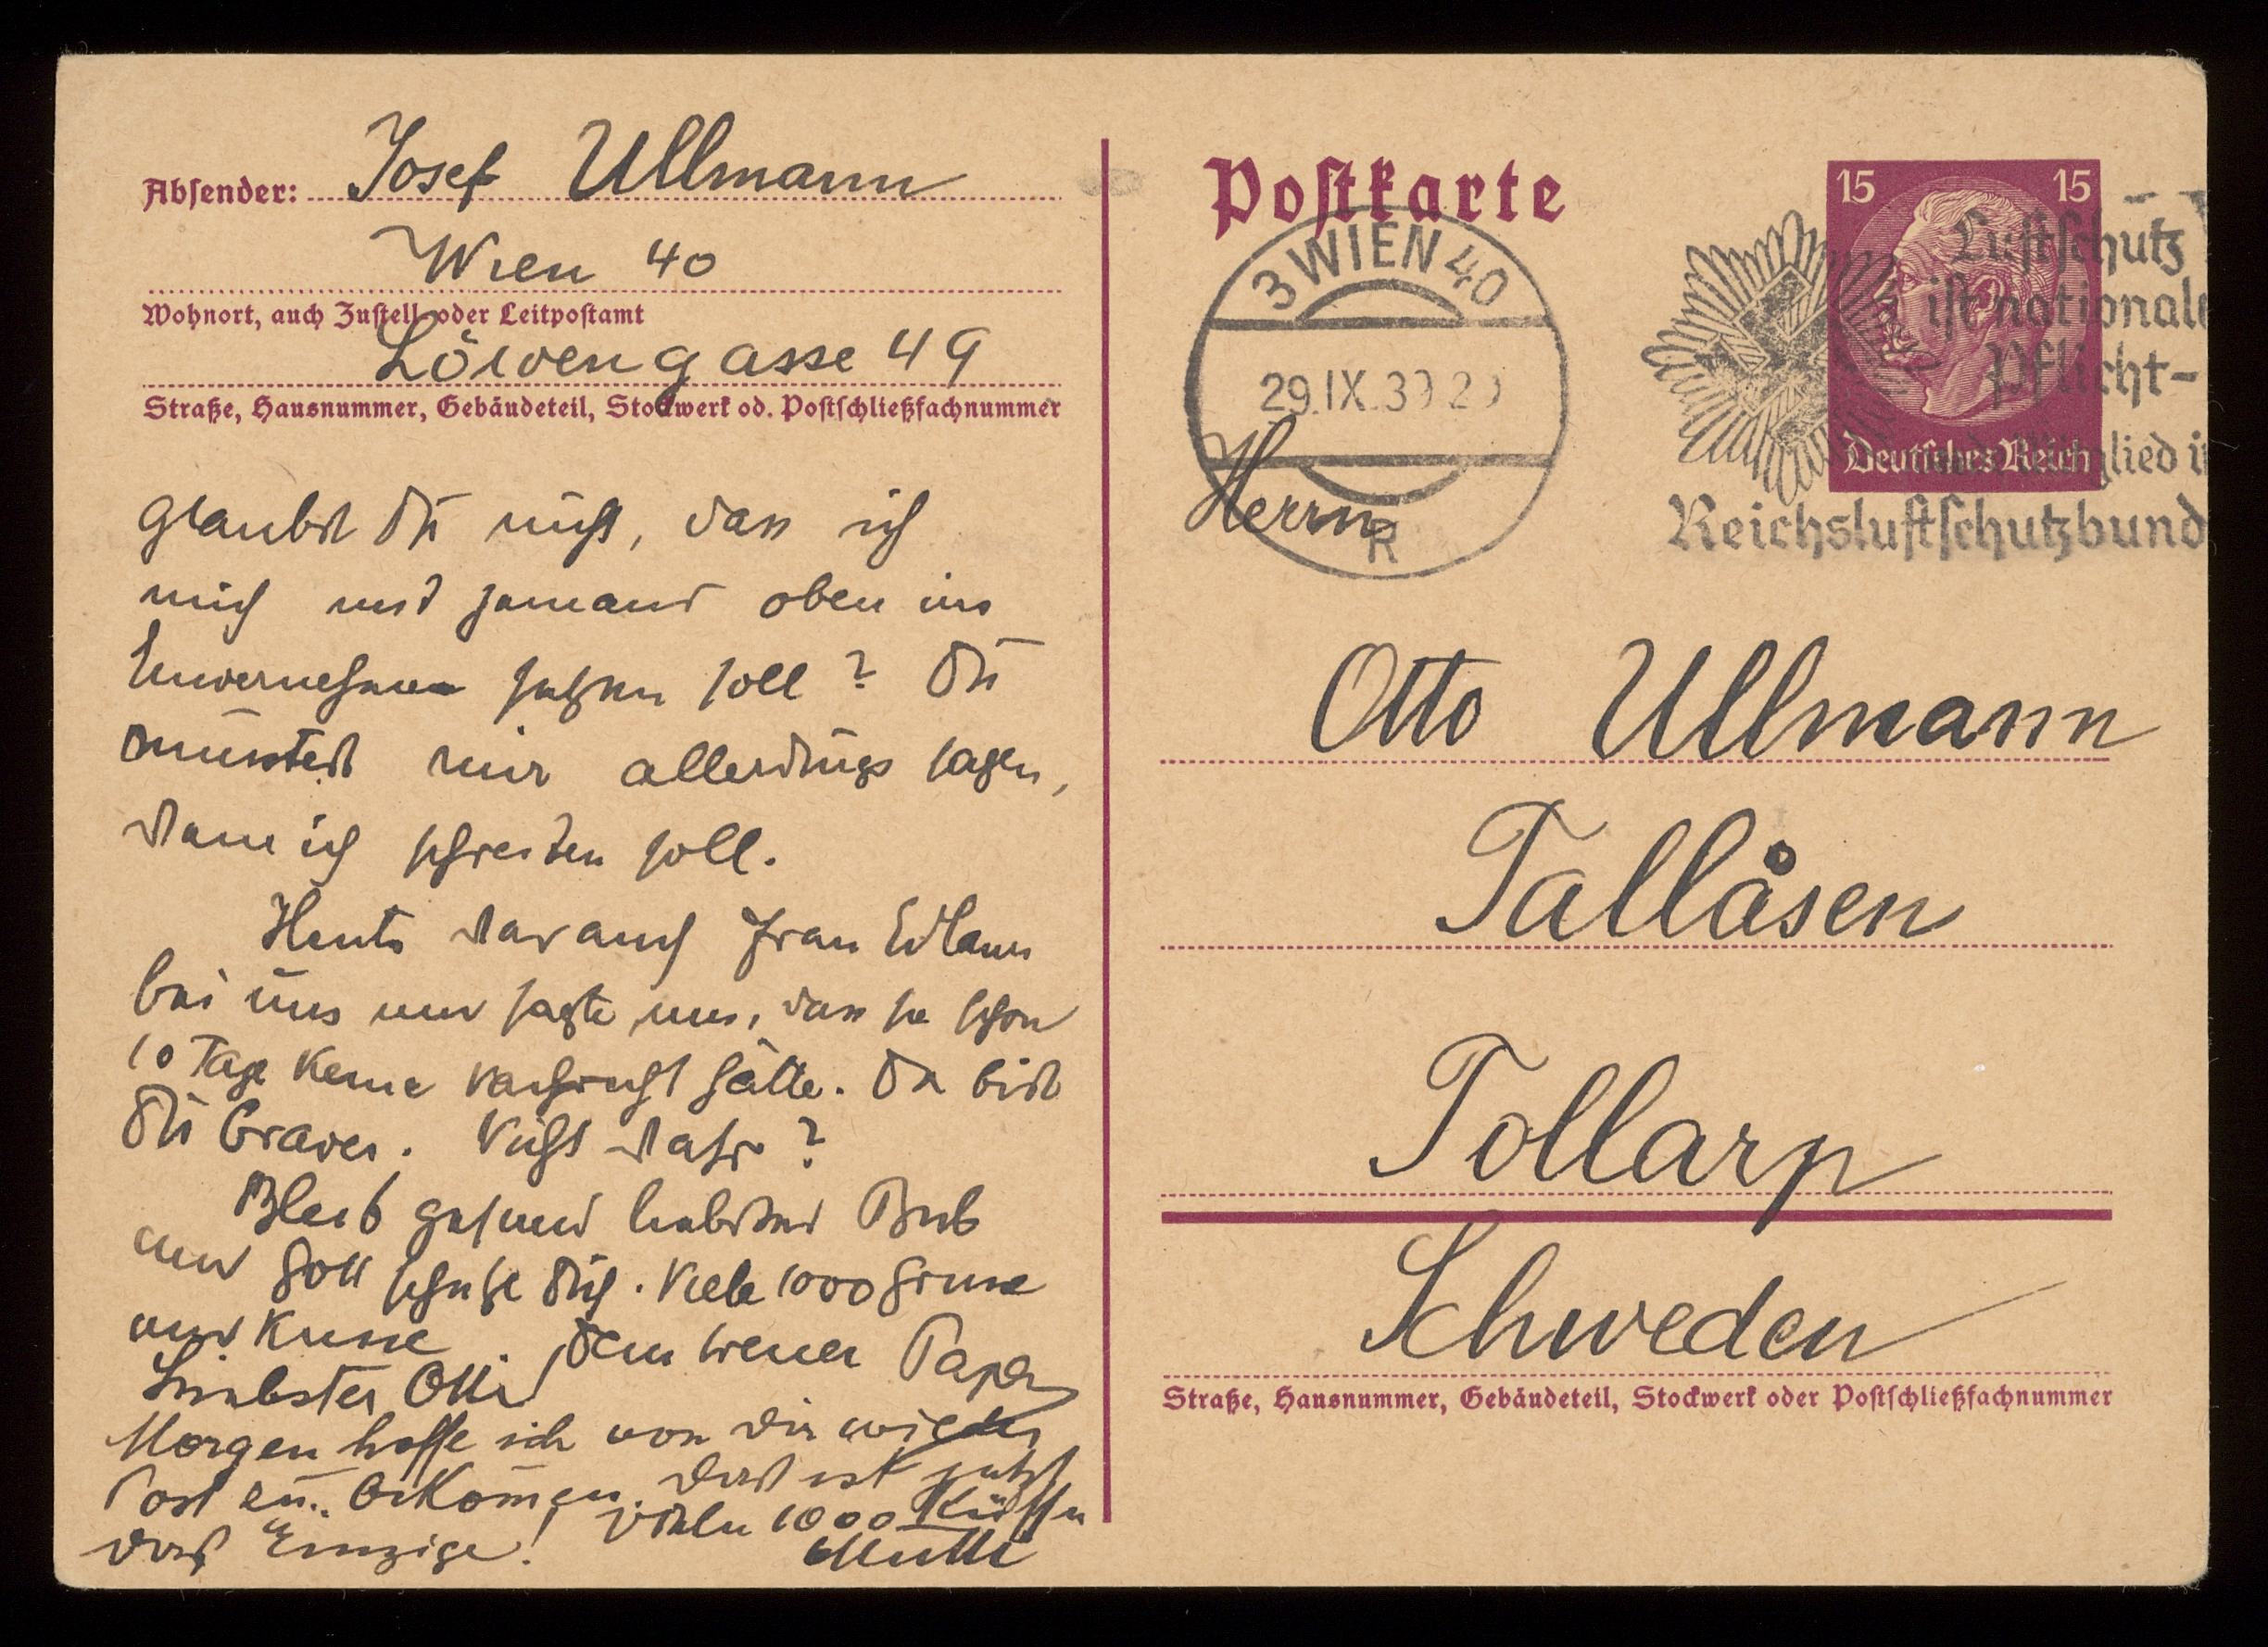 Absender: Josef Ullmann
Wien 40
Wohnort, auch Zustell- oder Leitpostamt
Löwengasse 49
Straße, Hausnummer, Gebäudeteil, Stockwerk od. Postschließfachnummer
glaubst Du nicht, dass ich
mich mit jemand oben ins
Einvernehmen setzen soll? Du
müsstest mir allerdings sagen,
wem ich schreiben soll.
Heute war auch Frau
bei uns und sagte uns, dass sie schon
10 Tage keine Nachricht hätte. Da bist
Du braver. Nicht wahr?
Bleib gesund liebster Bub
und Gott schütze Dich. Viele 1000 Grüsse
und Küsse Dein treuer Papa
Liebster Otto
Morgen hoffe ich von Dir wieder
Post zu bekom̄en. Das ist jetzt
das Einzige! Viele 1000 Küsse
Mutti
Postkarte
3 WIEN 40
29.IX.39
R
15 15
Deutsches Reich
Luftschutz
ist nationale
Pflicht-
Mitglied i
Reichsluftschutzbund
Herrn
Otto Ullmann
Tallåsen
Tollarp
Schweden
Straße, Hausnummer, Gebäudeteil, Stockwerk oder Postschließfachnummer